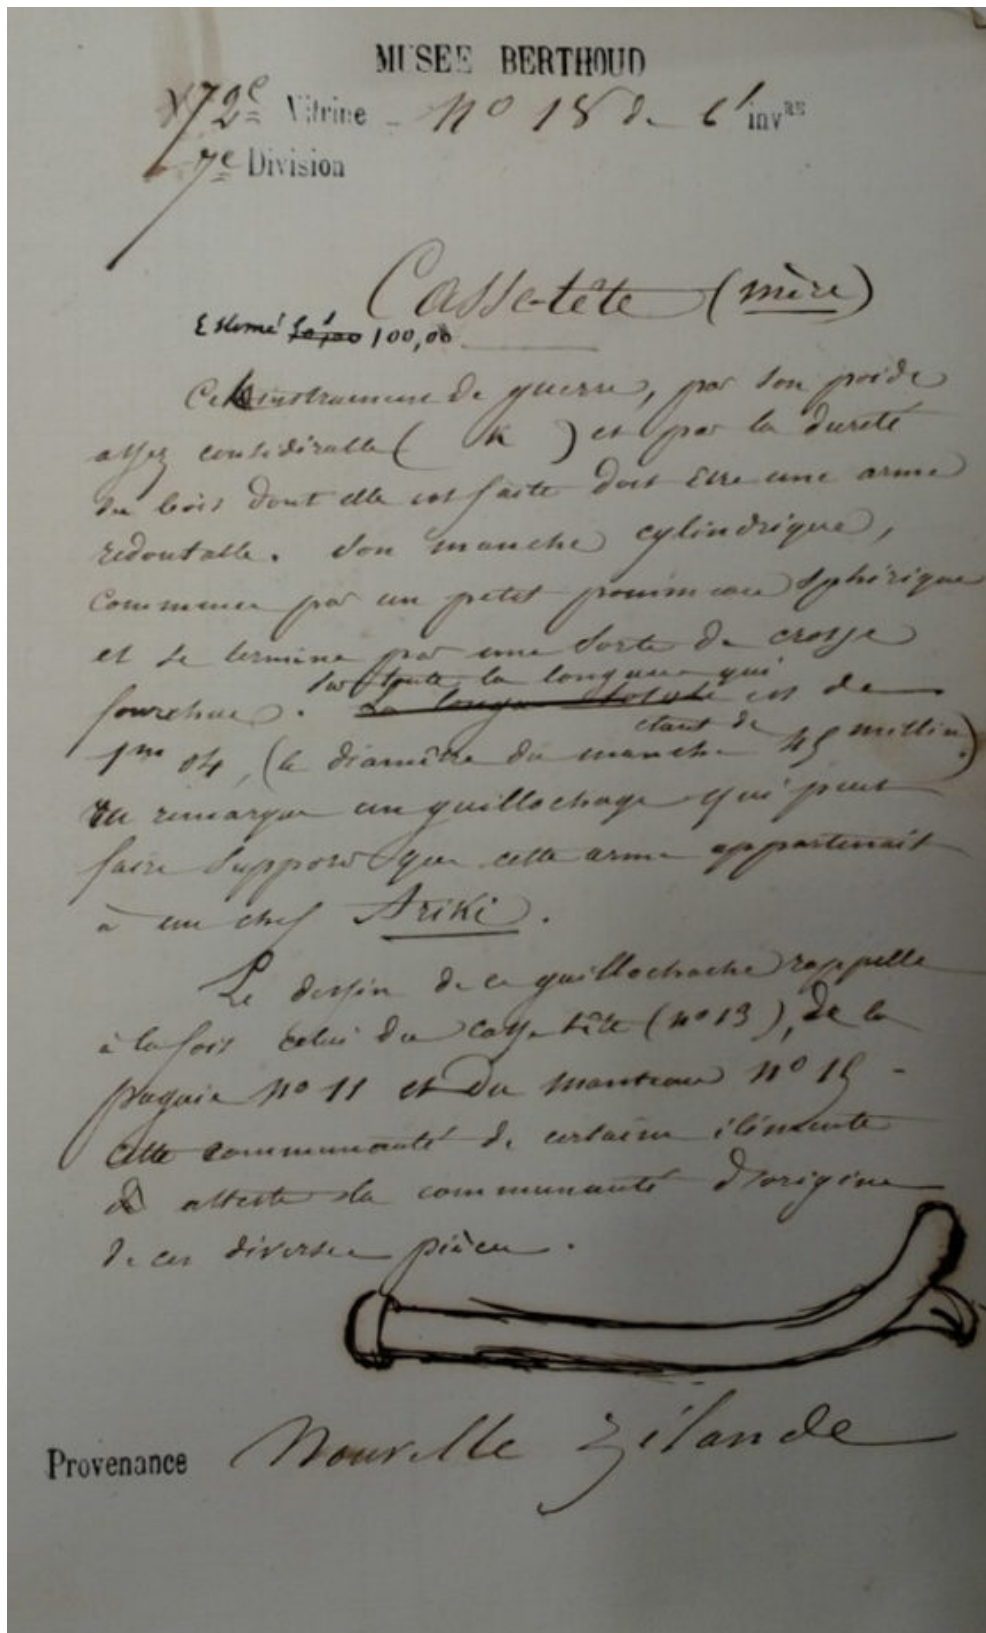 MUSEE BERTHOUD
72e Vitrine - No 18 de l' invre
7e Division
Casse-tête (mère)
Estimé 50,00 100,00
Cet instrument de guerre, par son poids
assez considérable ( K ) et par la dureté
du bois dont elle est faite doit être une arme
redoutable. Son manche cylindrique,
commence par un petit pommeau sphérique
et se termine par une sorte de crosse
sur toute la longueur qui
fourchue. La longueur totale est de
étant de
1m 04, (le diamètre du manche 45 millim.)
on remarque un guillochage qui peut
faire supposer que cette arme appartenait
à un chef Ariki.
Le dessin de ce guillochache rappelle
à la fois celui du casse tête (no 13), de la
pagaie No 11 et du manteau No 15 -
Cette communauté de certains éléments
atteste la communauté d'origine
de ces diverses pièces.
Provenance Nouvelle Zélande